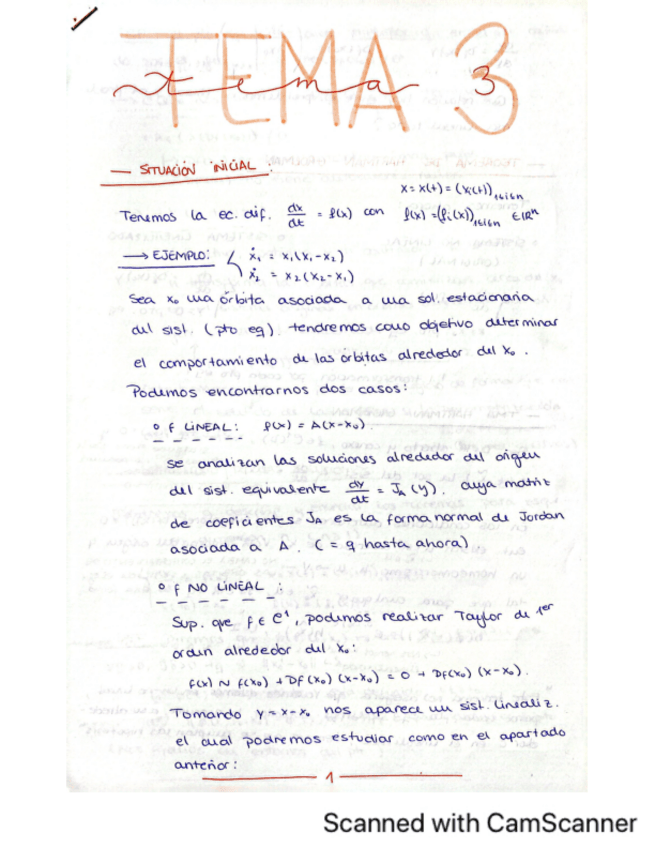 TEMA 3
tema
— SITUACIÓN INICIAL:
x = x(t) = (xi(t))1≤i≤n
Tenemos la ec. dif. dx/dt = f(x) con f(x) = (fi(x))1≤i≤n ∈ ℝⁿ
→ EJEMPLO: { ẋ₁ = x₁(x₁-x₂)
ẋ₂ = x₂(x₂-x₁)
Sea x₀ una órbita asociada a una sol. estacionaria
del sist. (pto eq). tendremos como objetivo determinar
el comportamiento de las órbitas alrededor del x₀.
Podemos encontrarnos dos casos:
° f LINEAL: f(x) = A(x-x₀)
se analizan las soluciones alrededor del origen
del sist. equivalente dy/dt = J_A(y), cuya matriz
de coeficientes J_A es la forma normal de Jordan
asociada a A. (= q hasta ahora)
° f NO LINEAL:
Sup. que f ∈ C¹, podemos realizar Taylor de 1er
orden alrededor del x₀:
f(x) ~ f(x₀) + Df(x₀)(x-x₀) = 0 + Df(x₀)(x-x₀).
Tomando y = x-x₀ nos aparece un sist. linealiz.
el cual podremos estudiar como en el apartado
anterior:
— 1 —
Scanned with CamScanner